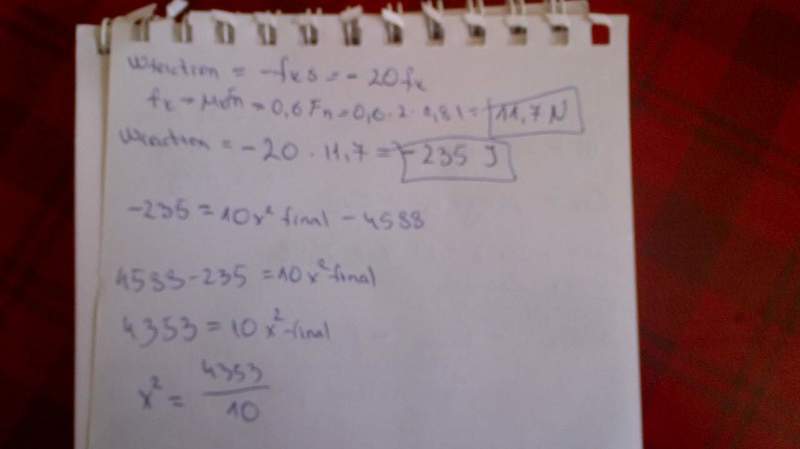 Wfriction = -fk s = - 20 fk
fk = μk Fn = 0,6 Fn = 0,6 · 2 · 9,81 = 11,7 N
Wfriction = - 20 · 11,7 = - 235 J
-235 = 10x² final - 4588
4588 - 235 = 10 x² final
4353 = 10 x² final
x² = 4353
10